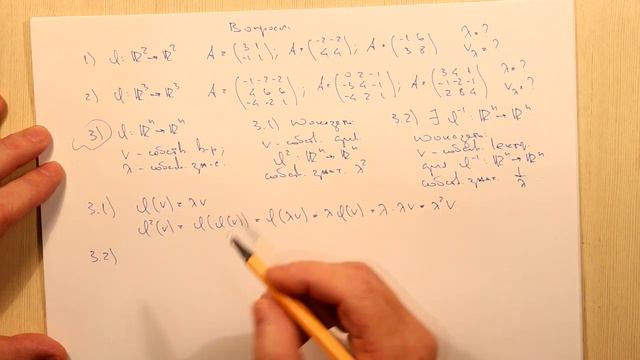 Вопросы:
1) φ: ℝ² → ℝ² A = (3 1; -1 1); A = (-2 -2; 4 4); A = (-1 6; 3 8) λ = ? V_λ = ?
2) φ: ℝ³ → ℝ³ A = (-1 -2 -2; 4 6 6; -4 -2 1); A = (0 2 -1; -3 4 -1; -4 2 1); A = (3 4 1; -1 -2 -1; 2 8 4) λ = ? V_λ = ?
3) φ: ℝⁿ → ℝⁿ
v - собств. в-р;
λ - собст. зн-е.
3.1) Доказать:
v - собст. для
φ²: ℝⁿ → ℝⁿ
собст. знач. λ²
3.2) ∃ φ⁻¹: ℝⁿ → ℝⁿ
Доказать:
v - собств. вектр.
для φ⁻¹: ℝⁿ → ℝⁿ
собств. знач. 1/λ
3.1) φ(v) = λv
φ²(v) = φ(φ(v)) = φ(λv) = λφ(v) = λ·λv = λ²v
3.2)